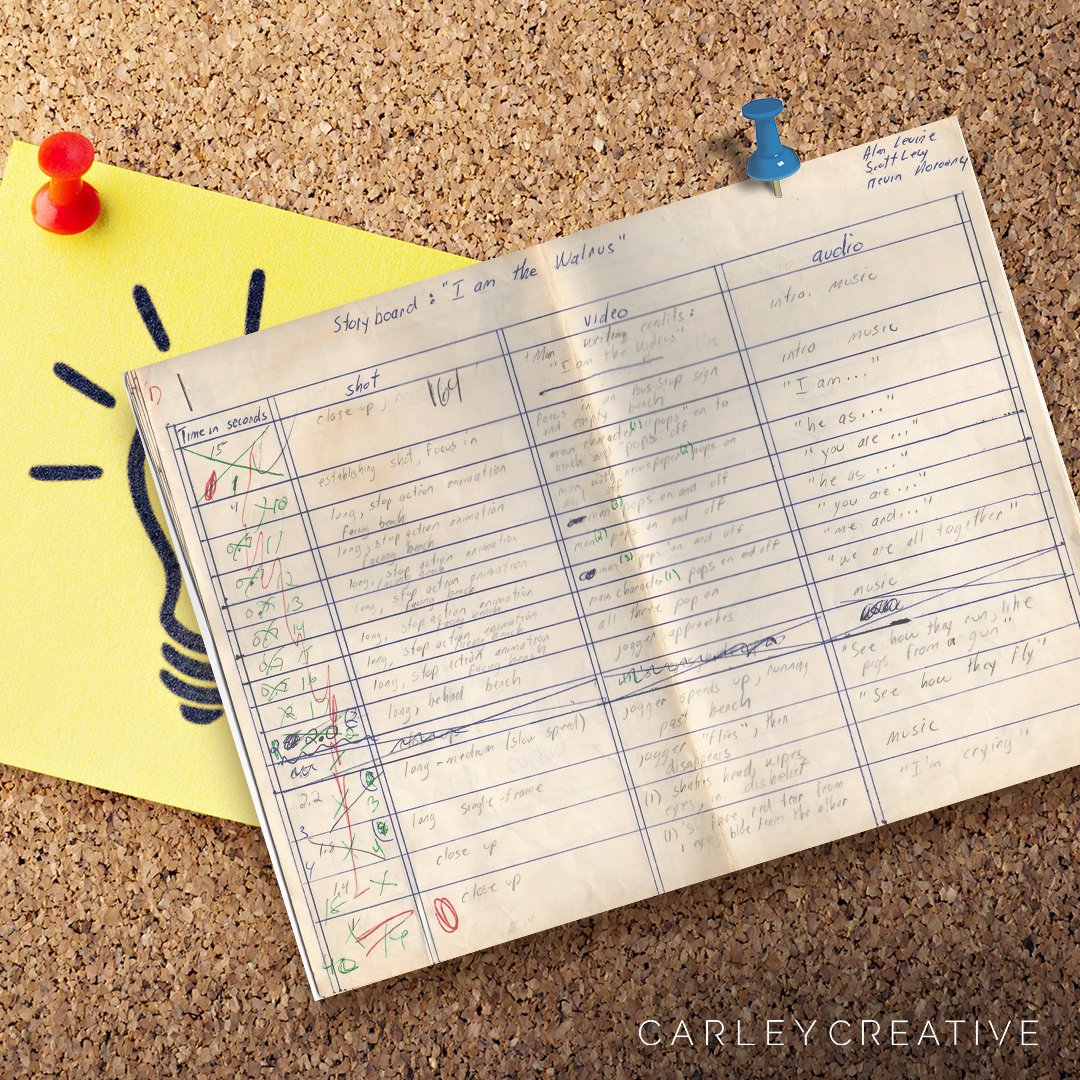 Alan Levine
Scott Levy
Storyboard: "I am the Walrus"
Time in seconds
shot
video
audio
1
164
close up,
writing credits:
"I am the Walrus"
intro. music
15
establishing shot, focus in
focus in on bus stop sign
and empty bench
intro music
1
4
long, stop action animation
facing bench
main character (1) "pops" on to
bench and "pops" off
"I am..."
10
long, stop action animation
facing bench
man with newspaper (2) pops on
and off
"he as..."
11
long, stop action animation
facing bench
man (3) pops on and off
"you are..."
12
long, stop action animation
facing bench
man (2) pops on and off
"he as..."
13
long, stop action animation
facing bench
man (3) pops on and off
"you are..."
14
long, stop action animation
facing bench
main character (1) pops on and off
"me and..."
long, stop action animation
facing bench
all three pop on
"we are all together"
16
long, behind bench
jogger approaches
music
long-medium (slow speed)
jogger speeds up, running
past bench
"See how they run, like
pigs from a gun"
2.2
3
long single-frame
jogger "flies", then
disappears
"See how they fly"
3
1.8
4
close up
(1) shakes head, wipes
eyes in disbelief
music
4
1.4
close up
(1)'s face, red tear from
1 eye, blue from the other
"I'm crying"
15
40
CARLEY CREATIVE